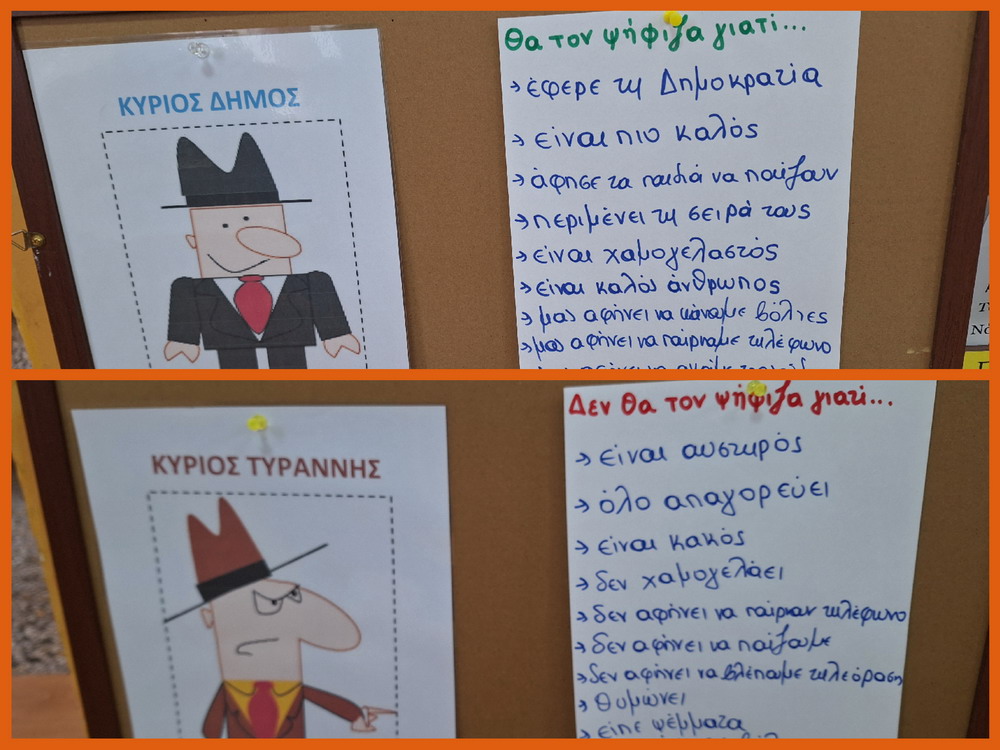 ΚΥΡΙΟΣ ΔΗΜΟΣ
Θα τον ψήφιζα γιατί...
→ έφερε τη Δημοκρατία
→ είναι πιο καλός
→ άφησε τα παιδιά να παίζουν
→ περιμένει τη σειρά τους
→ είναι χαμογελαστός
→ είναι καλός άνθρωπος
→ μας αφήνει να κάνουμε βόλτες
→ μας αφήνει να παίρναμε τηλέφωνο
ΚΥΡΙΟΣ ΤΥΡΑΝΝΗΣ
Δεν θα τον ψήφιζα γιατί...
→ είναι αυστηρός
→ όλο απαγορεύει
→ είναι κακός
→ δεν χαμογελάει
→ δεν αφήνει να παίρναν τηλέφωνο
→ δεν αφήνει να παίζουμε
→ δεν αφήνει να βλέπουμε τηλεόραση
→ θυμώνει
→ είπε ψέμματα